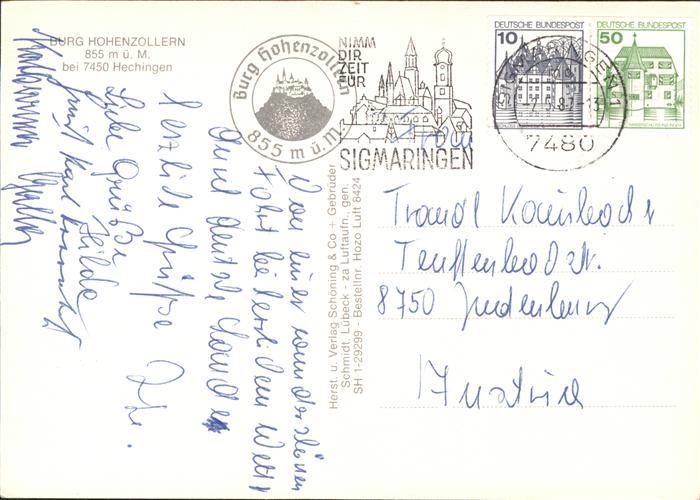 BURG HOHENZOLLERN
855 m ü. M.
bei 7450 Hechingen
Burg Hohenzollern
855 m ü. M.
NIMM
DIR
ZEIT
FÜR
SIGMARINGEN
DEUTSCHE BUNDESPOST
10
DEUTSCHE BUNDESPOST
50
SIGMARINGEN 1
7480
Herst. u. Verlag Schöning & Co + Gebrüder
Schmidt, Lübeck - za Luftaufn., gen.
SH 1-29299 - Bestellnr. Hozo Luft 8424
Von einer wunderschönen
Fahrt bei herrlichem Wetter
durch deutsche Lande
herzliche Grüße
Liebe Grüße
Hilde
8750 Judenburg
Austria